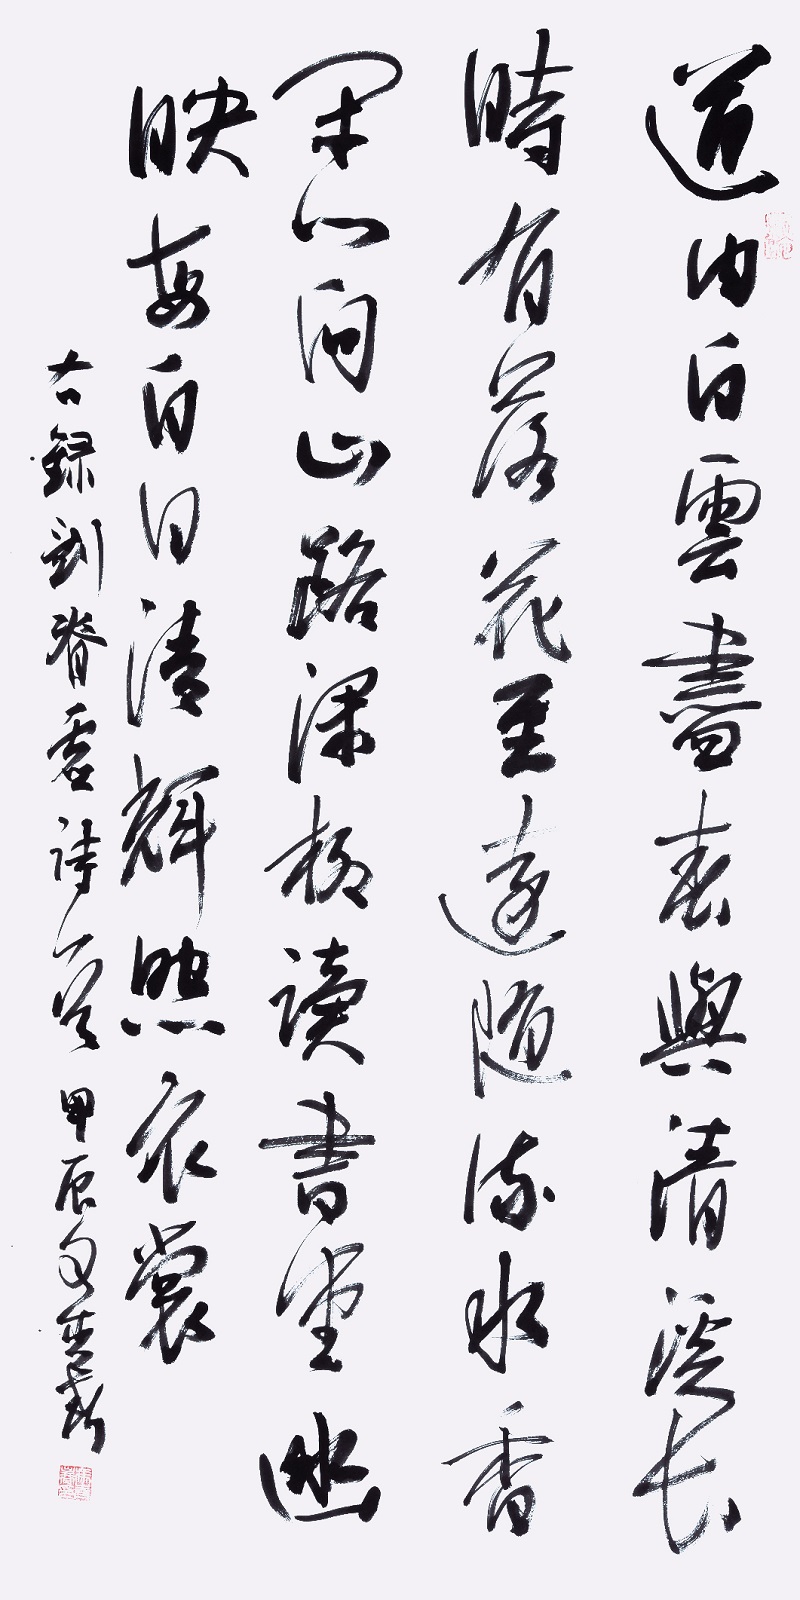 道由白雲盡春與清溪长
時有落花至遠随流水香
閑門向山路深柳讀書堂幽
映每白日清輝照衣裳
右録劉昚虚詩一首 甲辰